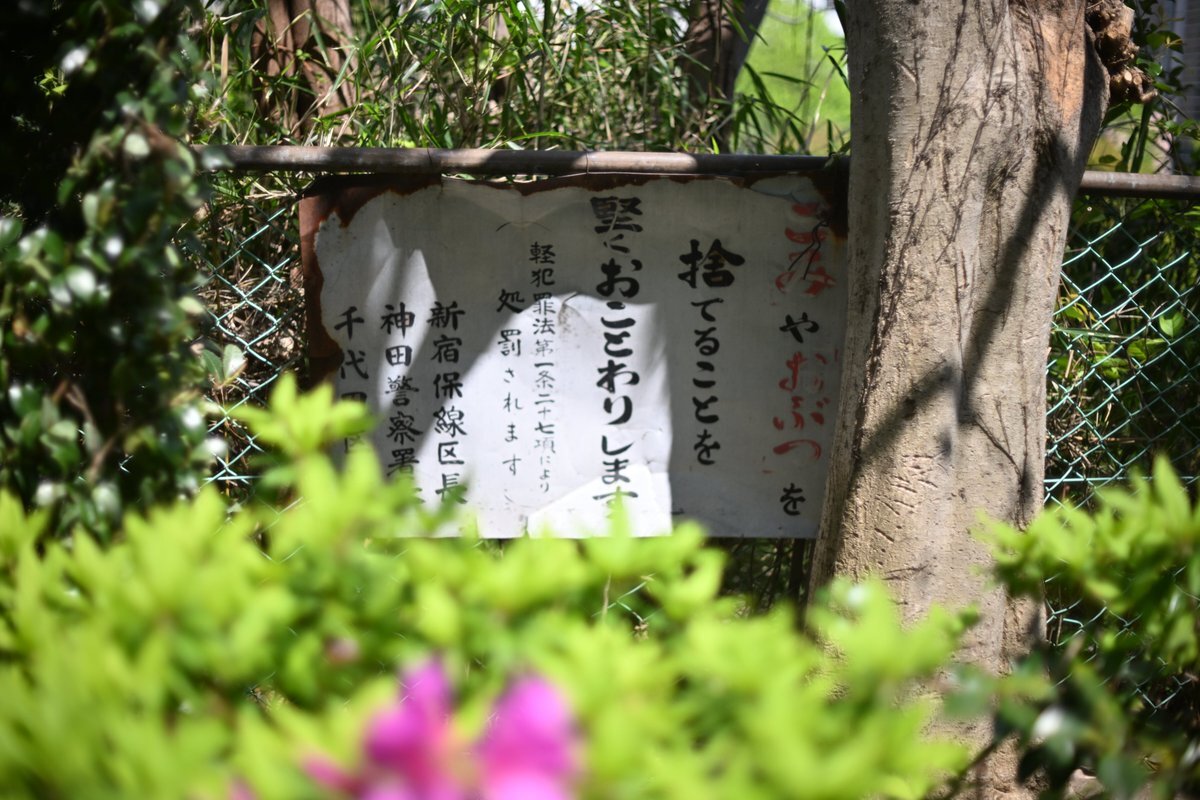 ごみやおぶつを
捨てることを
堅くおことわりします
軽犯罪法第一条二十七項により
処罰されます。
新宿保線区長
神田警察署
千代田